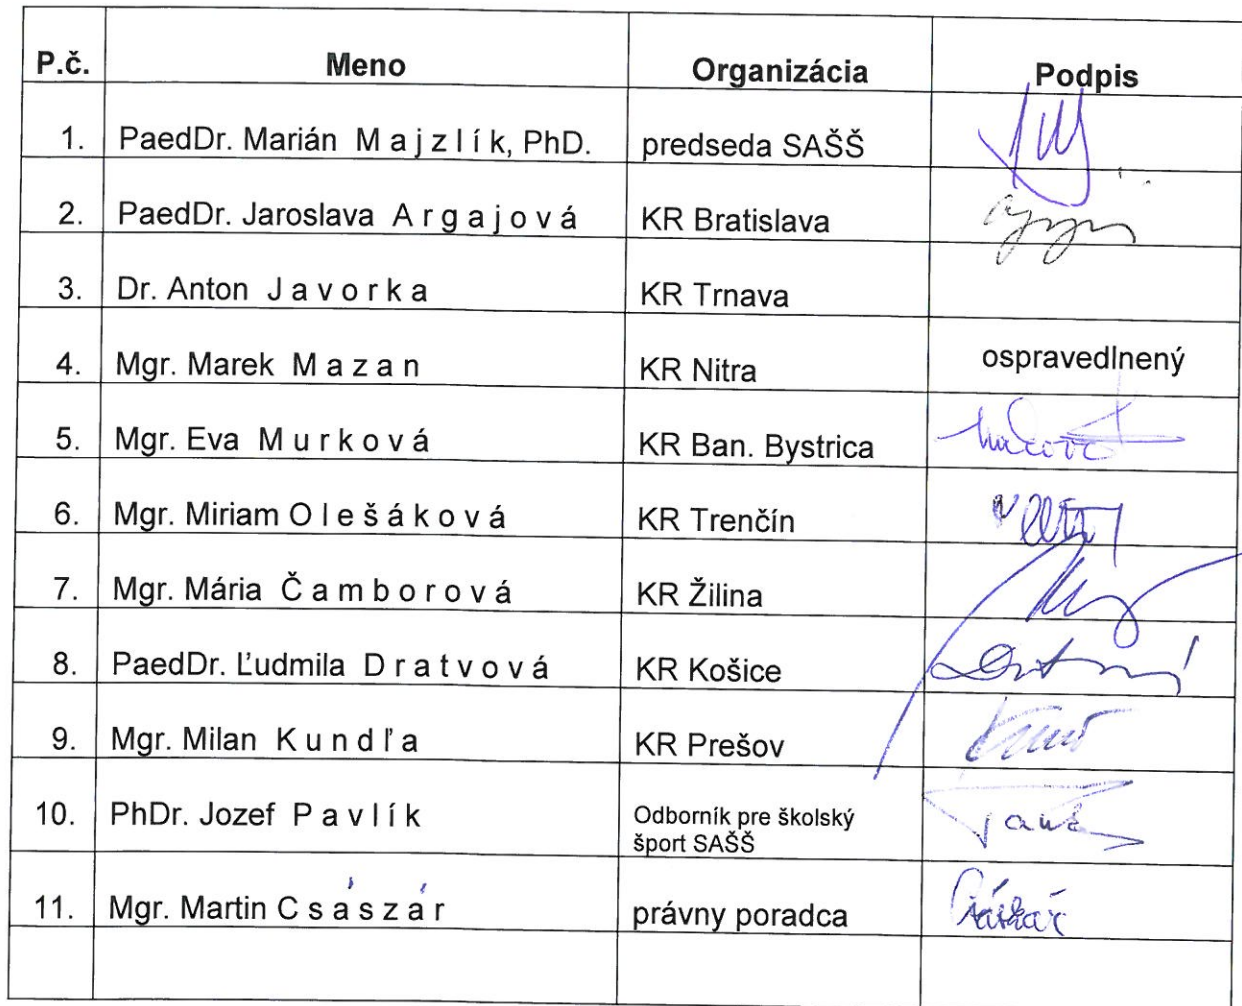 P.č. Meno Organizácia Podpis
1. PaedDr. Marián M a j z l í k, PhD. predseda SAŠŠ
2. PaedDr. Jaroslava A r g a j o v á KR Bratislava
3. Dr. Anton J a v o r k a KR Trnava
4. Mgr. Marek M a z a n KR Nitra ospravedlnený
5. Mgr. Eva M u r k o v á KR Ban. Bystrica
6. Mgr. Miriam O l e š á k o v á KR Trenčín
7. Mgr. Mária Č a m b o r o v á KR Žilina
8. PaedDr. Ľudmila D r a t v o v á KR Košice
9. Mgr. Milan K u n d ľ a KR Prešov
10. PhDr. Jozef P a v l í k Odborník pre školský
šport SAŠŠ
11. Mgr. Martin C s á s z á r právny poradca